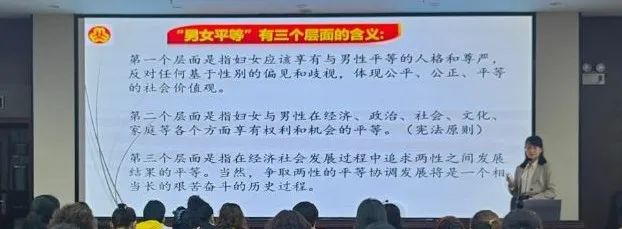 “男女平等”有三个层面的含义：
第一个层面是指妇女应该享有与男性平等的人格和尊严，
反对任何基于性别的偏见和歧视，体现公平、公正、平等
的社会价值观。
第二个层面是指妇女与男性在经济、政治、社会、文化、
家庭等各个方面享有权利和机会的平等。（宪法原则）
第三个层面是指在经济社会发展过程中追求两性之间发展
结果的平等。当然，争取两性的平等协调发展将是一个相
当长的艰苦奋斗的历史过程。